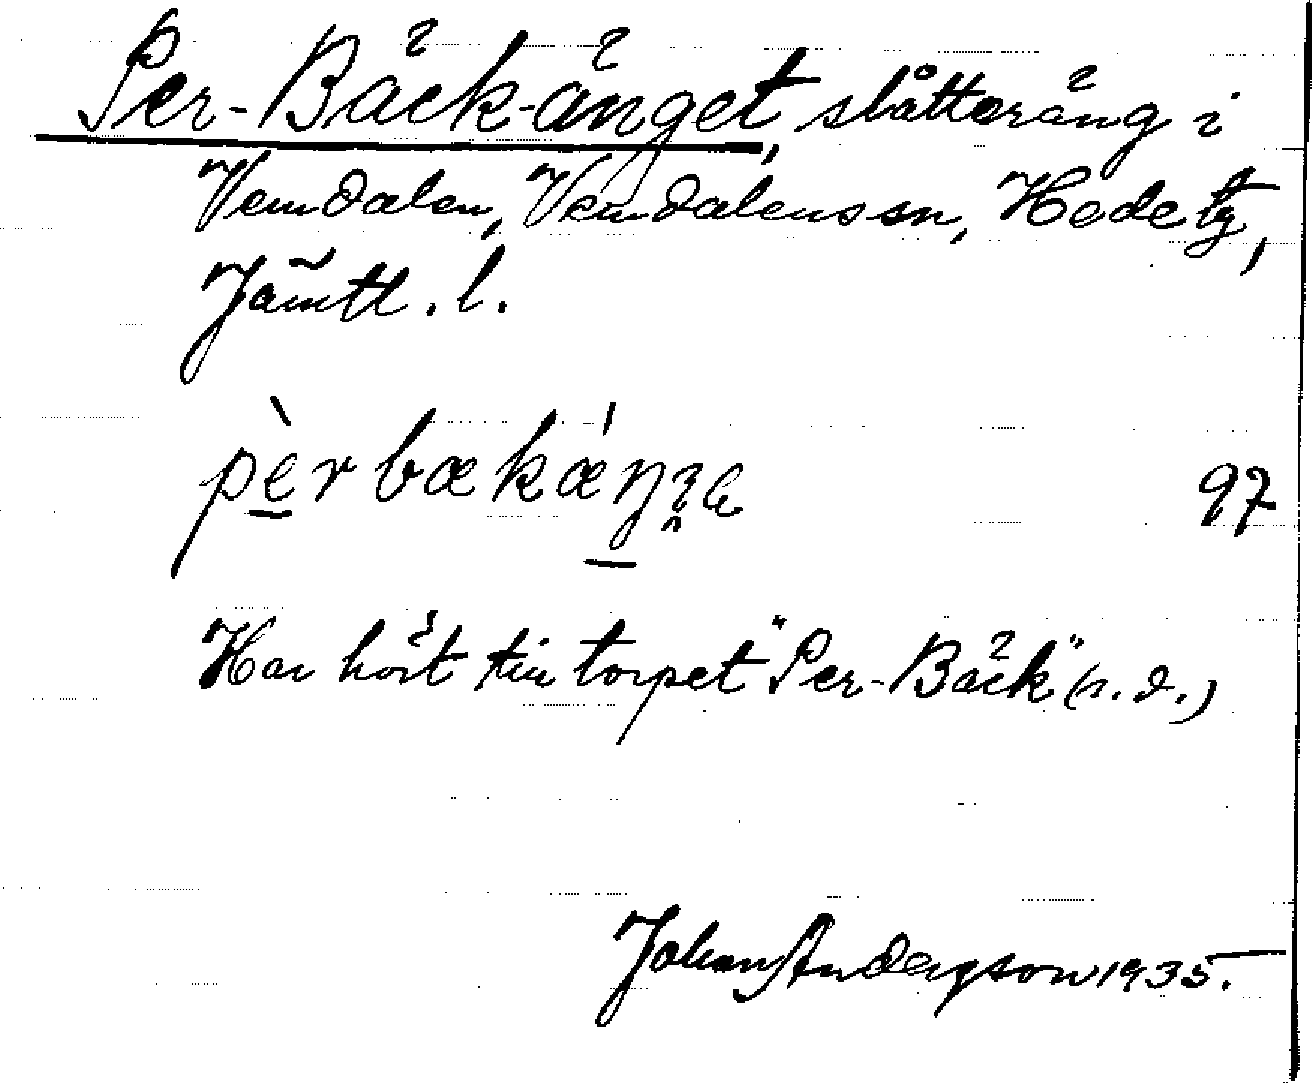 Per-Bäck-änget, slåtteräng i
Vemdalen, Vemdalens sn, Hede tg,
Jämtl. l.
pèrbækǽŋʒe 97
Har hört till torpet "Per-Bäck" (s. d.)
Johan Anderson 1935.